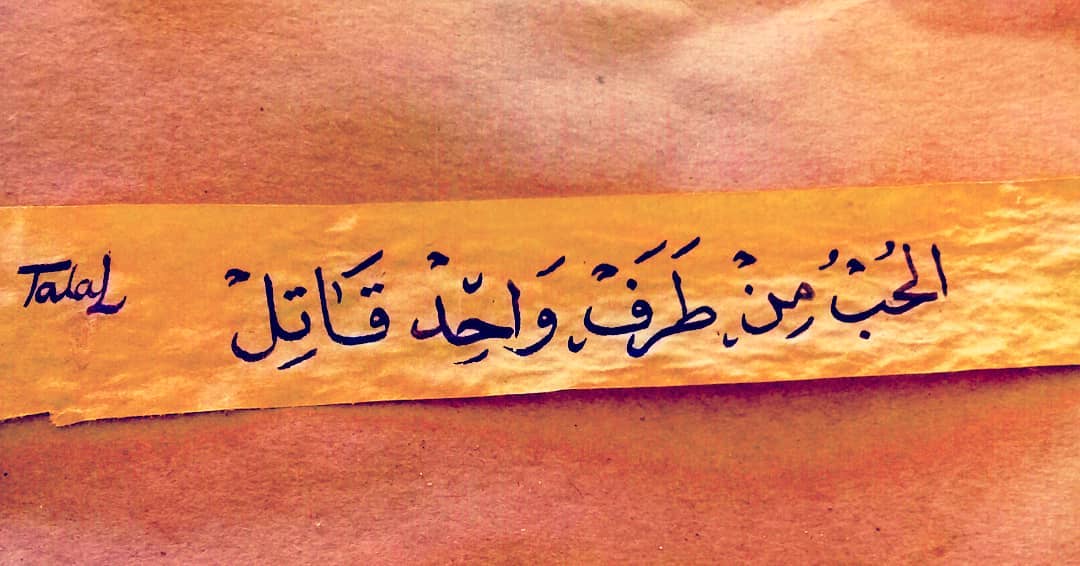 الحُبْ مِنْ طَرَفْ وَاحِّدْ قَاتِلْ
Talal